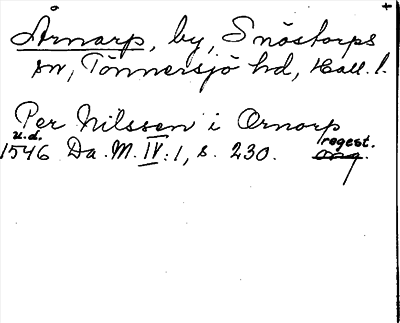 +
Årnarp, by, Snöstorps
sn, Tönnersjö hd, Hall. l.
Per Nilssen i Ornorp
u.d.
1546 Da. M. IV:1, s. 230. regest.
orig.